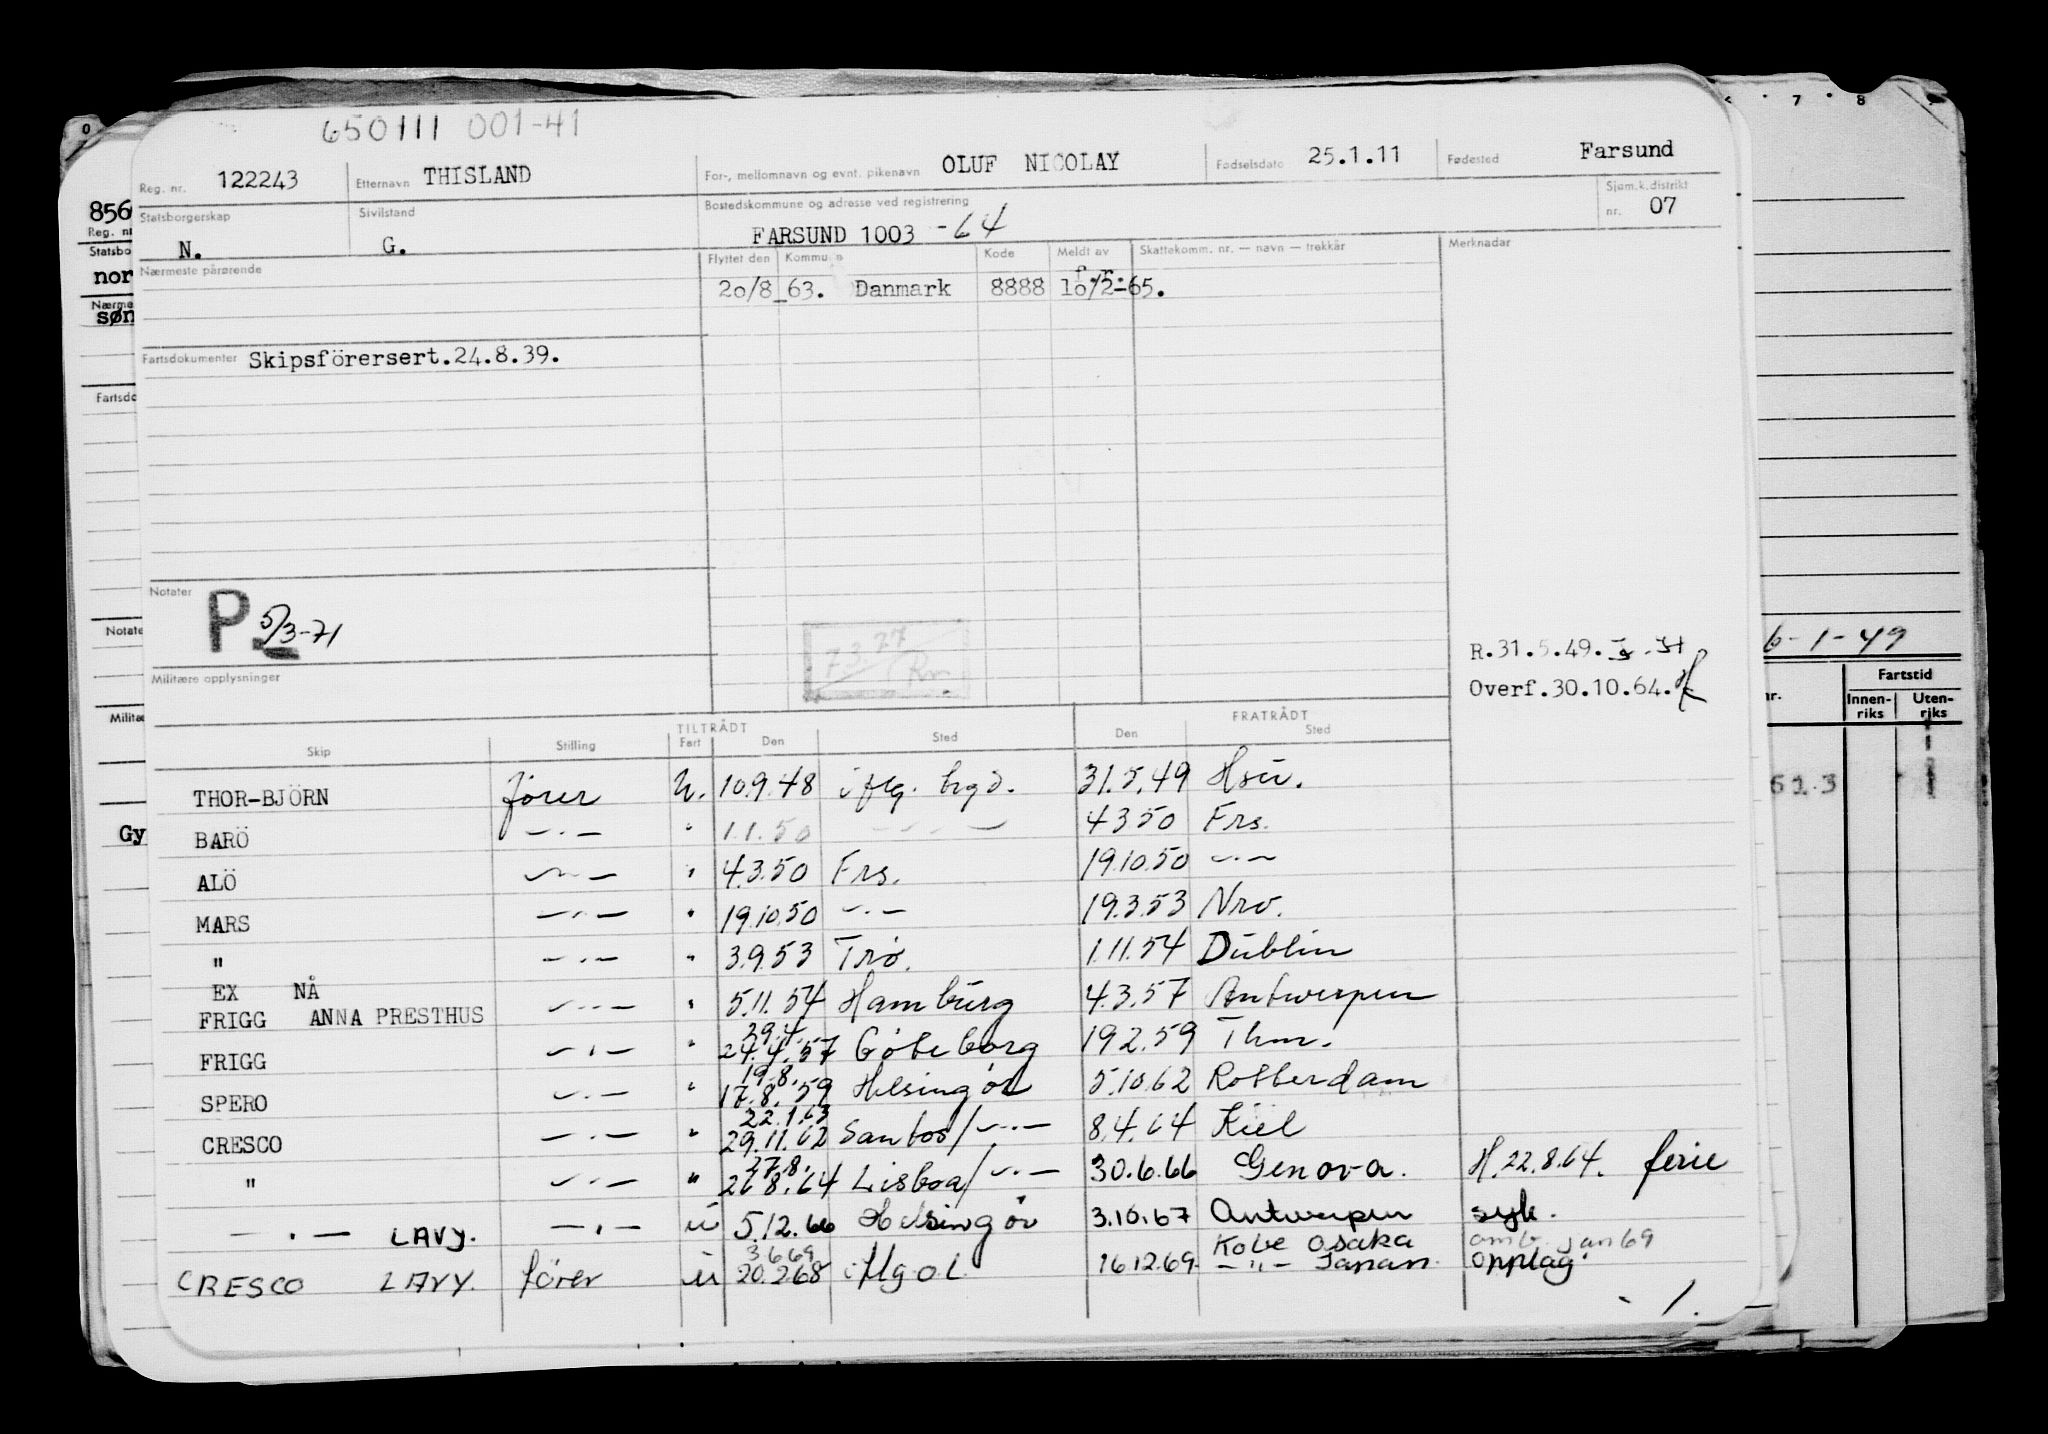 650111 001-41
Reg. nr. 122243 Etternavn THISLAND For-, mellomnavn og evnt. pikenavn OLUF NICOLAY Fødselsdato 25.1.11 Fødested Farsund
Statsborgerskap N. Sivilstand G. Bostedskommune og adresse ved registrering FARSUND 1003 -64 Sjøm.k.distrikt nr. 07
Nærmeste pårørende Flyttet den Kommune Kode Meldt av Skattekomm. nr. — navn — trekkår Merknader
20/8_63. Danmark 8888 f.r. 10/2-65.
Fartsdokumenter Skipsförersert.24.8.39.
Notater P. 5/3-71
7.3.77
R.31.5.49.
Militære opplysninger
Overf.30.10.64.
TILTRÅDT FRATRÅDT
Skip Stilling Fart Den Sted Den Sted
THOR-BJÖRN fører U. 10.9.48 i flg. bygd. 31.5.49 Hsu.
BARÖ —.— " 1.1.50 — — — 4350 Frs.
ALÖ —.— " 4.3.50 Frs. 19.10.50 —.—
MARS —.— " 19.10.50 —.— 19.3.53 Nrv.
" —.— " 3.9.53 Trø. 1.11.54 Dublin
EX NÅ
FRIGG ANNA PRESTHUS —.— " 5.11.54 Hamburg 4.3.57 Antwerpen
29.4.
FRIGG —.— " 24.4.57 Göteborg 19.2.59 Thm.
19.8.
SPERO —.— " 17.8.59 Helsingør 5.10.62 Rotterdam
22.1.63
CRESCO —.— " 29.11.62 Santos/—.— 8.4.64 Kiel
27.8.
" —.— " 26.8.64 Lisboa/—.— 30.6.66 Genova. H.22.8.64. ferie
—.— LAVY. —.— u 5.12.66 Helsingør 3.10.67 Antwerpen syk.
3.6.69 Kobe Osaka omb. jan 69
CRESCO LAVY. fører u 20.2.68 16.12.69. —"— Japan. Opplag.
1.
856
Reg. n
Statsbo
nor
Nærme
søn
Fartsdo
Notate
Militæ
Gy
7 8
6-1-49
Fartstid
Innen-riks Uten-riks
61.3